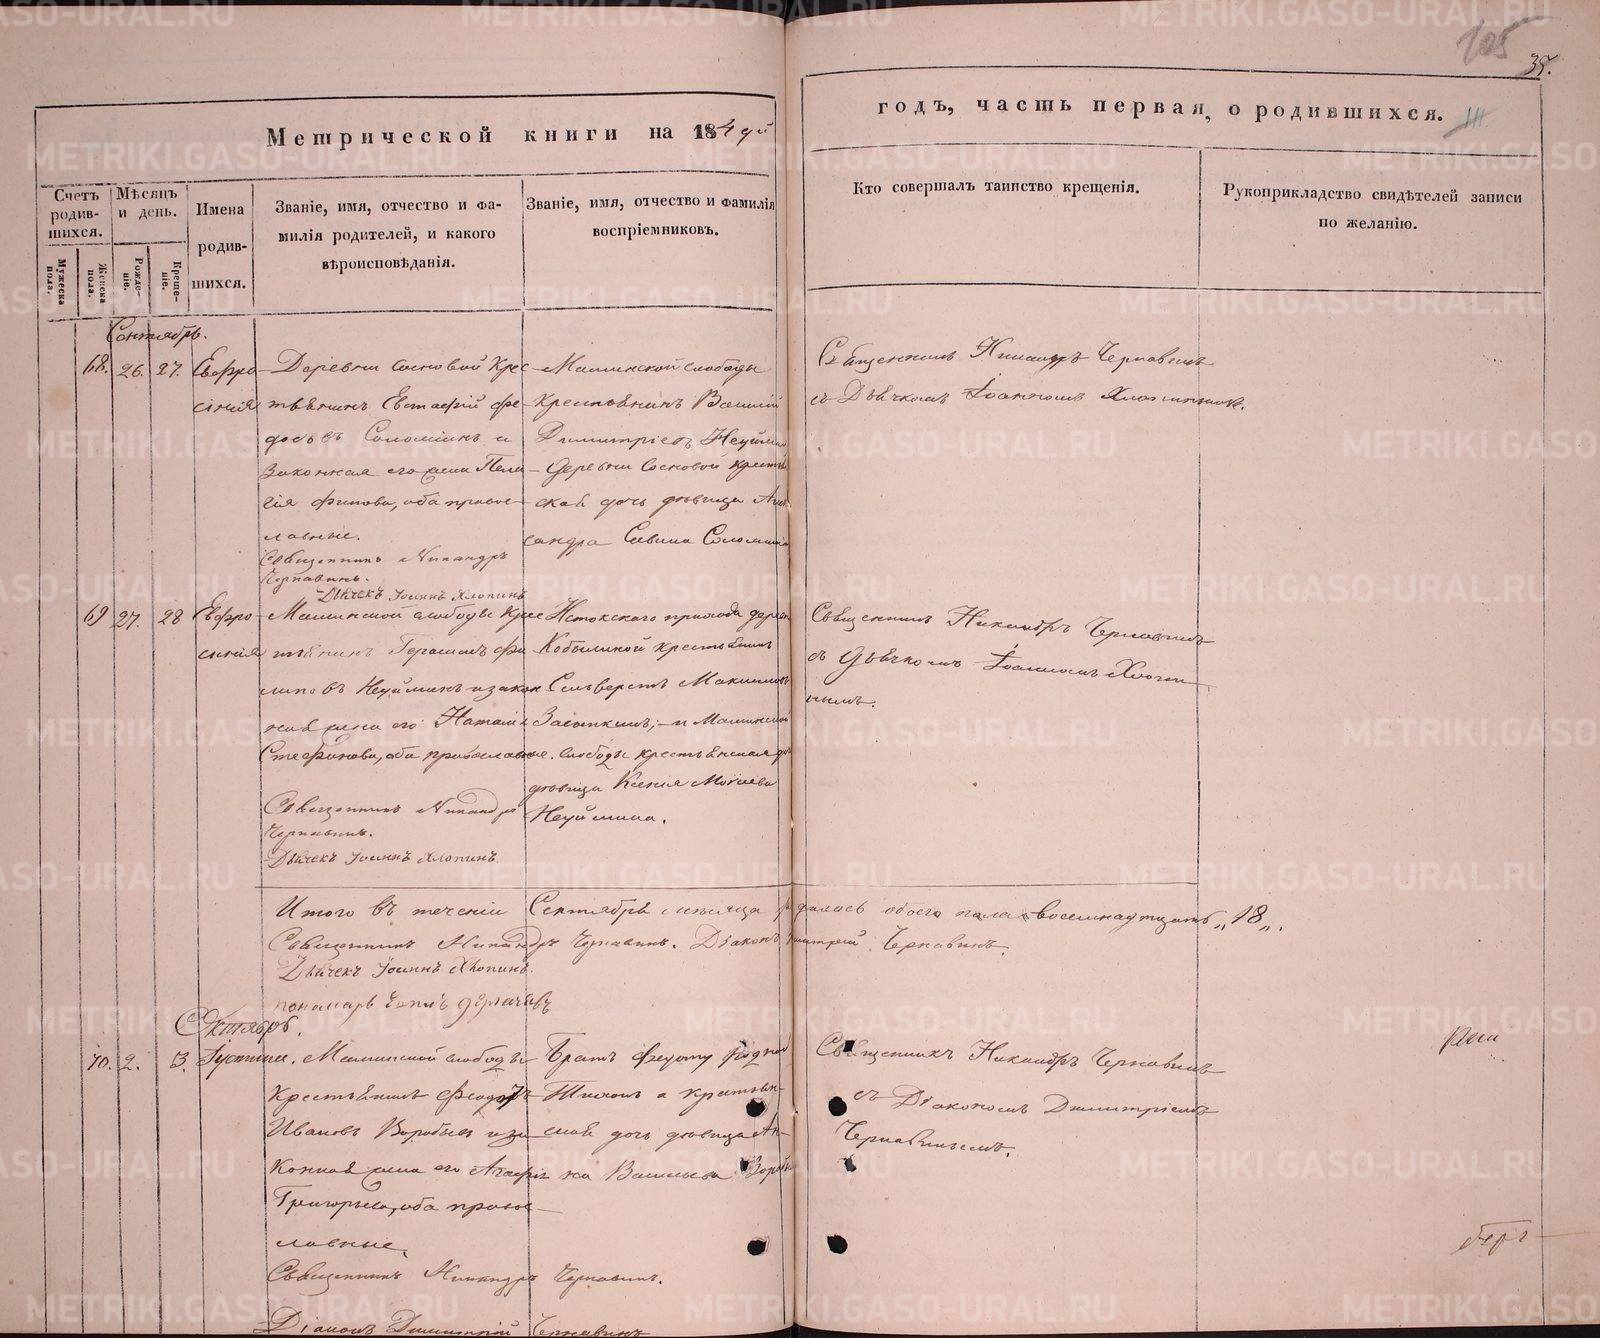 105
35.
Метрической книги на 184
годъ, часть первая, о родившихся.
Счетъ родив-шихся.
Мужеска пола.
Женска пола.
Мѣсяцъ и день.
Рожде-ніе.
Креще-ніе.
Имена родив-шихся.
Званіе, имя, отчество и фа-
милія родителей, и какого
вѣроисповѣданія.
Званіе, имя, отчество и фамилія
воспріемниковъ.
Кто совершалъ таинство крещенія.
Рукоприкладство свидѣтелей записи
по желанію.
68. 26. 27. Евфро
синія
Деревни Сосновой крес
тьянинъ Евстафій Фе
Соломинъ и
законная его жена Пела
гія оба правос
лавные.
Священникъ Никандръ
Чернавинъ.
Дьячекъ Іоаннъ Хлопинъ
Маминской слободы
крестьянинъ Василій
Димитріевъ Неуймин
деревни Сосновой крестьян
ской дочь дѣвица Алек
сандра Савина Соломина
Священникъ Никандръ Чернавинъ
съ Дьячкомъ Іоанномъ Хлопинымъ.
69 27. 28 Евфро
синія
Маминской слободы крес
тьянинъ Герасимъ Фи
липовъ Неуйминъ и закон
ная жена его Наталія
Стефанова, оба православные.
Священникъ Никандръ
Чернавинъ.
Дьячекъ Іоаннъ Хлопинъ
Истокского прихода дерев
Кобылиной крестьянинъ
Селиверстъ Максимовъ
и Маминской
слободы крестьянская
дѣвица Ксенія Моисеева
Неуймина.
Священникъ Никандръ Чернавинъ
съ Дьячкомъ Іоанномъ Хлопи
нымъ.
Итого въ теченіи Сентября мѣсяца родилось обоего пола восемнадцать „18„.
Священникъ Никандръ Чернавинъ. Діаконъ Димитрій Чернавинъ.
Дьячекъ Іоаннъ Хлопинъ.
пономарь
Октябрь.
70. 2. 3. Іустина.
Маминской слободы
крестьянинъ Феодотъ
Ивановъ Воробьевъ и за
конная жена его Агафія
Григорьева, оба правос
лавные.
Священникъ Никандръ Чернавинъ.
Діаконъ Димитрій Чернавинъ
Братъ Федоту родной
Тихонъ и крестьян-
ская дочь дѣвица Ан-
на Васильева Вороб
Священникъ Никандръ Чернавинъ
съ Діакономъ Димитріемъ
Чернавинымъ.
METRIKI.GASO-URAL.RU